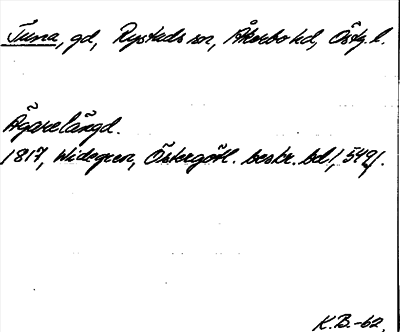 Tuna, gd, Rystads sn, Åkerbo hd, Östg. l.
Ägarelängd.
1817, Widegren, Östergötl. beskr. bd 1, 549/.
K.B.-62.